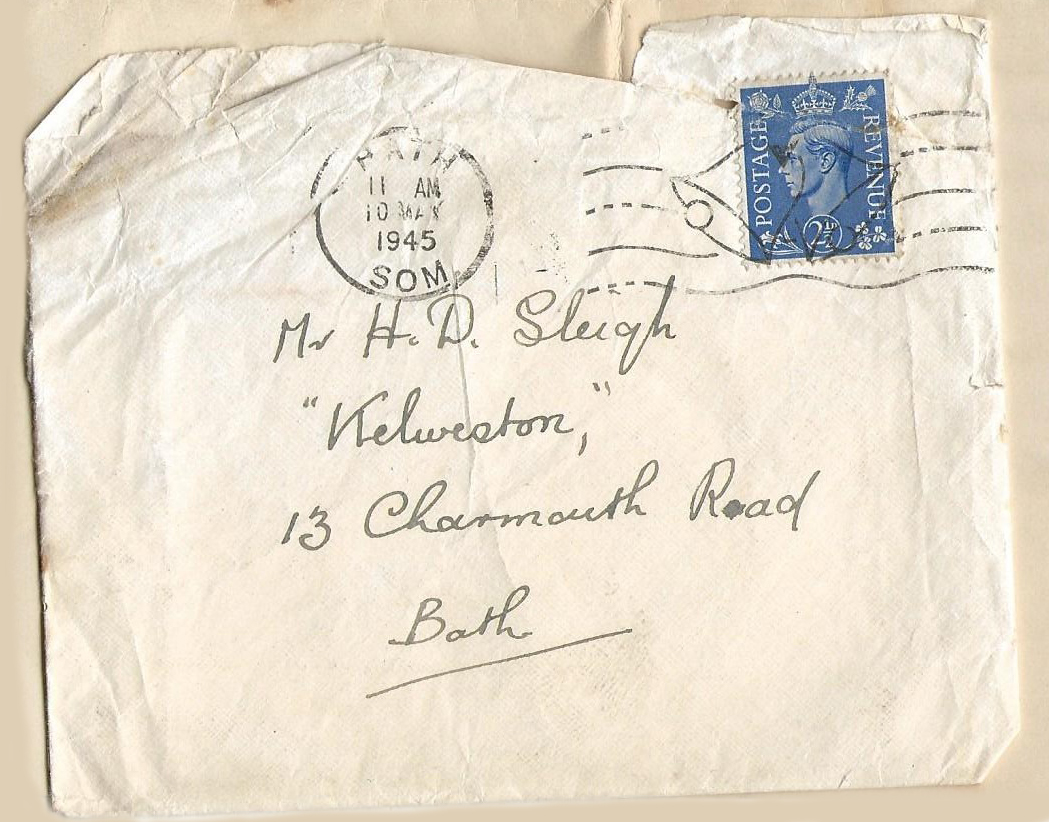 BATH
11 AM
10 MAY
1945
SOM
POSTAGE
REVENUE
2½D
Mr H. D. Sleigh
"Kelweston,"
13 Charmouth Road
Bath